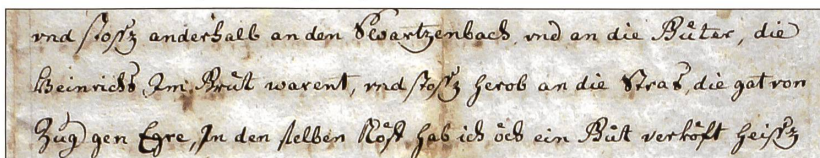 vnd stosʒ anderhalb an den Swartzenbach, vnd an die Rüter, die
Heinrichs Jm Rrüt warent, vnd stosʒ herob an die Stras, die gat von
Zug gen Egre, Jn den selben Köff hab ich öch ein Rüt verköft heisʒ